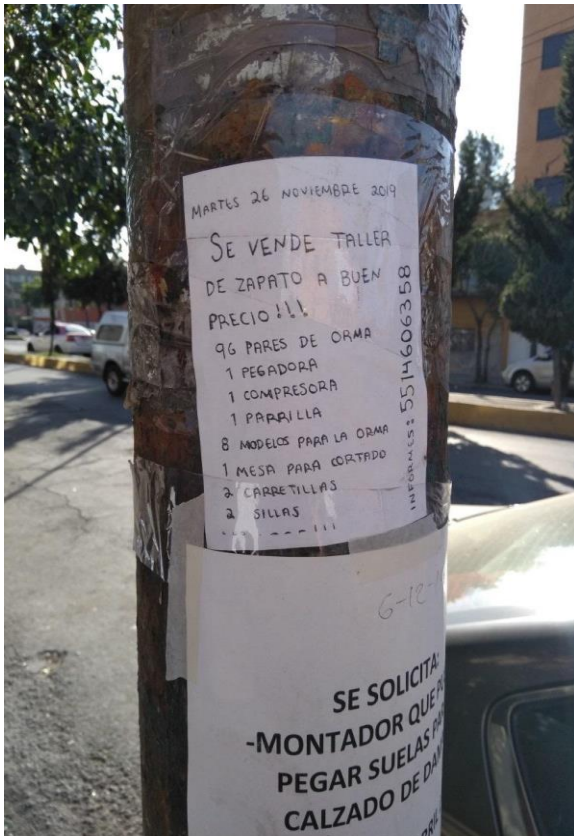 MARTES 26 NOVIEMBRE 2019
SE VENDE TALLER
DE ZAPATO A BUEN
PRECIO!!!
96 PARES DE ORMA
1 PEGADORA
1 COMPRESORA
1 PARRILLA
8 MODELOS PARA LA ORMA
1 MESA PARA CORTADO
2 CARRETILLAS
2 SILLAS
INFORMES: 5514606358
6-12-
SE SOLICITA:
-MONTADOR QUE
PEGAR SUELAS
CALZADO DE